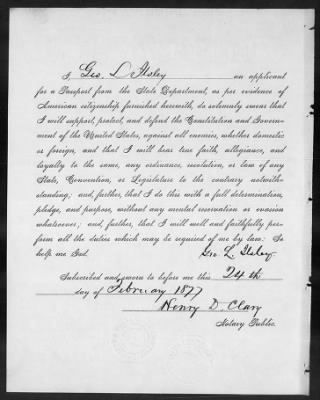 I, Geo. L. Ilsley an applicant
for a Passport from the State Department, as per evidence of
American citizenship furnished herewith, do solemnly swear that
I will support, protect, and defend the Constitution and Govern-
ment of the United States, against all enemies, whether domestic
or foreign, and that I will bear true faith, allegiance, and
loyalty to the same, any ordinance, resolution, or law of any
State, Convention, or Legislature to the contrary notwith-
standing; and, further, that I do this with a full determination,
pledge, and purpose, without any mental reservation or evasion
whatsoever; and, further, that I will well and faithfully per-
form all the duties which may be required of me by law: So
help me God.
Geo. L. Ilsley
Subscribed and sworn to before me this 24th
day of February 1877
Henry D. Clary
Notary Public.